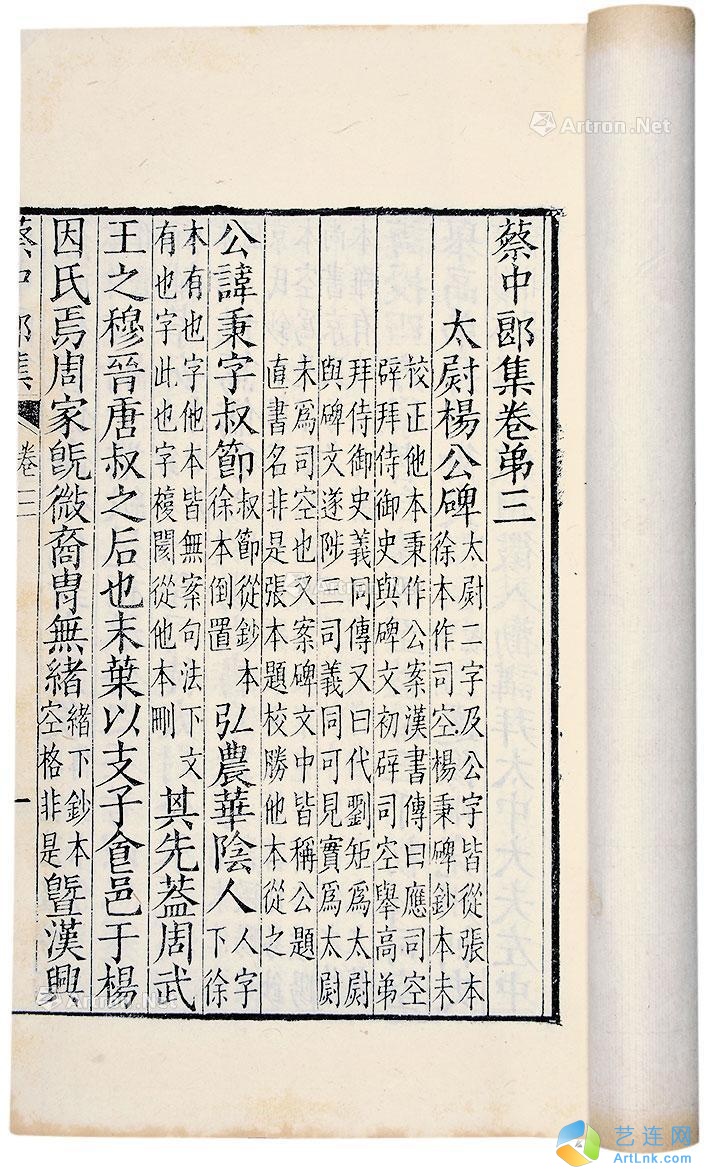 蔡中郎集卷弟三
太尉楊公碑太尉二字及公字皆從張本
徐本作司空楊秉碑鈔本未
校正他本秉作公案漢書傳曰應司空
辟拜侍御史與碑文初辟司空舉高弟
拜侍御史義同傳又曰代劉矩爲太尉
與碑文遂陟三司義同可見實爲太尉
未爲司空也又案碑文中皆稱公題
直書名非是張本題校勝他本從之
公諱秉字叔節叔節從鈔本徐本倒置弘農華陰人人字下徐
本有也字他本皆無案句法下文有也字此也字複閡從他本刪其先葢周武
王之穆晉唐叔之后也末葉以支子食邑于楊
因氏焉周家旣微裔胄無緒緒下鈔本空格非是曁漢興
蔡中郎集 卷三 一
Artron.Net
艺连网
ArtLnk.com